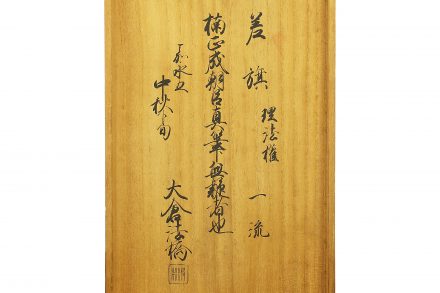 差旗 理法権 一流
楠正成朝臣真筆無疑者也
嘉永五
中秋旬
大倉法橋